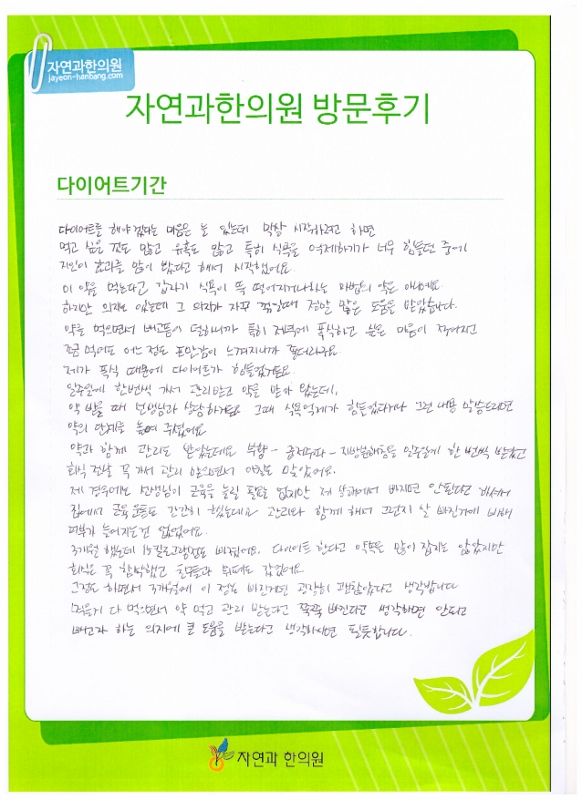 자연과한의원
jayeon-hanbang.com
자연과한의원 방문후기
다이어트기간
다이어트를 해야겠다는 마음은 늘 있는데 막상 시작하려고 하면
먹고 싶은 것도 많고 유혹도 많고 특히 식욕을 억제하기가 너무 힘들던 중에
지인이 효과를 많이 봤다고 해서 시작했어요.
이 약을 먹는다고 갑자기 식욕이 뚝 떨어지거나하는 마법의 약은 아니에요.
하지만 의지는 있는데 그 의지가 자꾸 꺾일때 정말 많은 도움을 받았습니다.
약을 먹으면서 배고픔이 덜하니까 특히 저녁에 폭식하고 싶은 마음이 적어지고
조금 먹어도 어느 정도 포만감이 느껴지니까 좋더라구요
제가 폭식 때문에 다이어트가 힘들었거든요.
일주일에 한번씩 가서 관리받고 약을 받아 왔는데,
약 받을 때 선생님과 상담하거든요 그때 식욕억제가 힘들었다거나 그런 내용 말씀드리면
약의 단계를 높여 주셨어요
약과 함께 관리도 받았는데요 부항 - 중저주파 - 지방분해침등 일주일에 한 번씩 받았고
회식 전날 꼭 가서 관리 받으면서 이랑도 말았어요.
제 경우에는 선생님이 근육을 늘릴 필요는 없지만 제 뜻에서 빠지면 안된다고 하셔서
집에서 근육 운동도 간간히 했는데요 관리와 함께 해서 그런지 살 빠진거에 비해
피부가 늘어지는건 없었어요.
3개월 했는데 14킬로그램정도 빠졌어요. 다이어트 한다고 약속을 많이 잡지는 않았지만
회식은 꼭 참석했고 친구들과 뷔페도 갔었어요
그정도 하면서 3개월에 이 정도 빠진거면 굉장히 괜찮았다고 생각합니다
먹을거 다 먹으면서 약 먹고 관리 받는다고 쭉쭉 빠진다고 생각하면 안되고
빼고자 하는 의지에 큰 도움을 받는다고 생각하시면 될듯합니다.
자연과 한의원